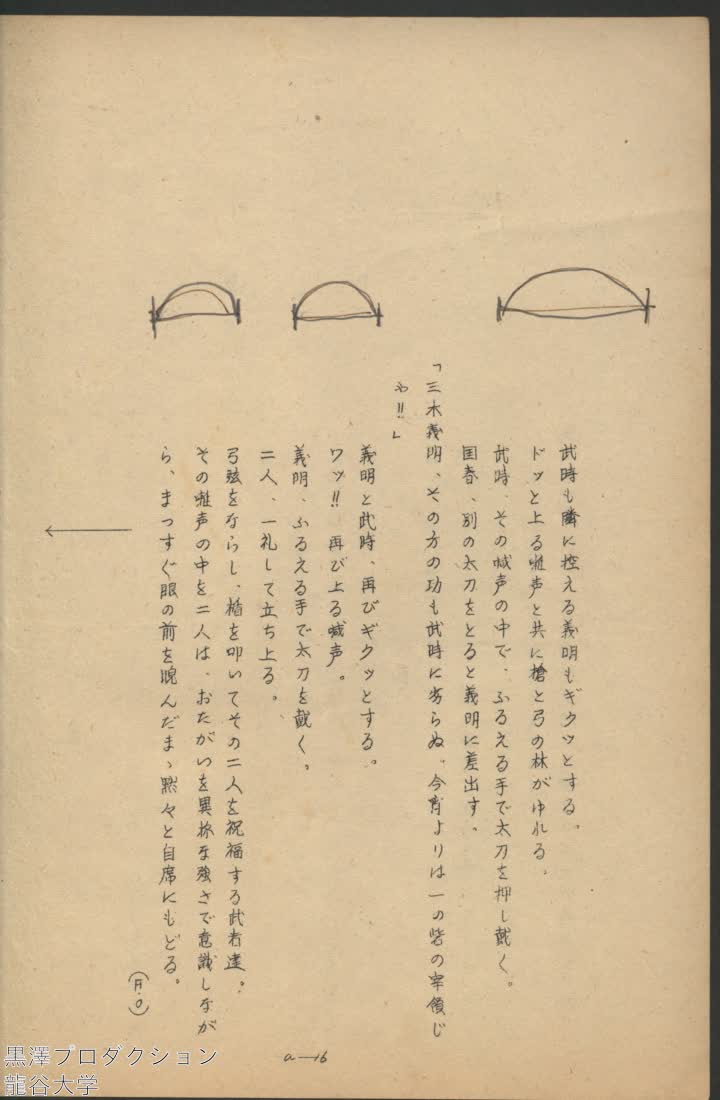 武時も隣に控える義明もギクッとする。
ドッと上る喊声と共に槍と弓の林がゆれる。
武時、その喊声の中で、ふるえる手で太刀を押し戴く。
国春、別の太刀をとると義明に差出す。
「三木義明、その方の功も武時に劣らぬ。今宵よりは一の砦の宰領じ
や!!」
義明と武時、再びギクッとする。
ワッ!! 再び上る喊声。
義明、ふるえる手で太刀を戴く。
二人、一礼して立ち上る。
弓弦をならし、楯を叩いてその二人を祝福する武者達。
その喊声の中を二人は、おたがいを異様な強さで意識しなが
ら、まっすぐ眼の前を睨んだまゝ黙々と自席にもどる。
(F.O)
a—16
黒澤プロダクション
龍谷大学